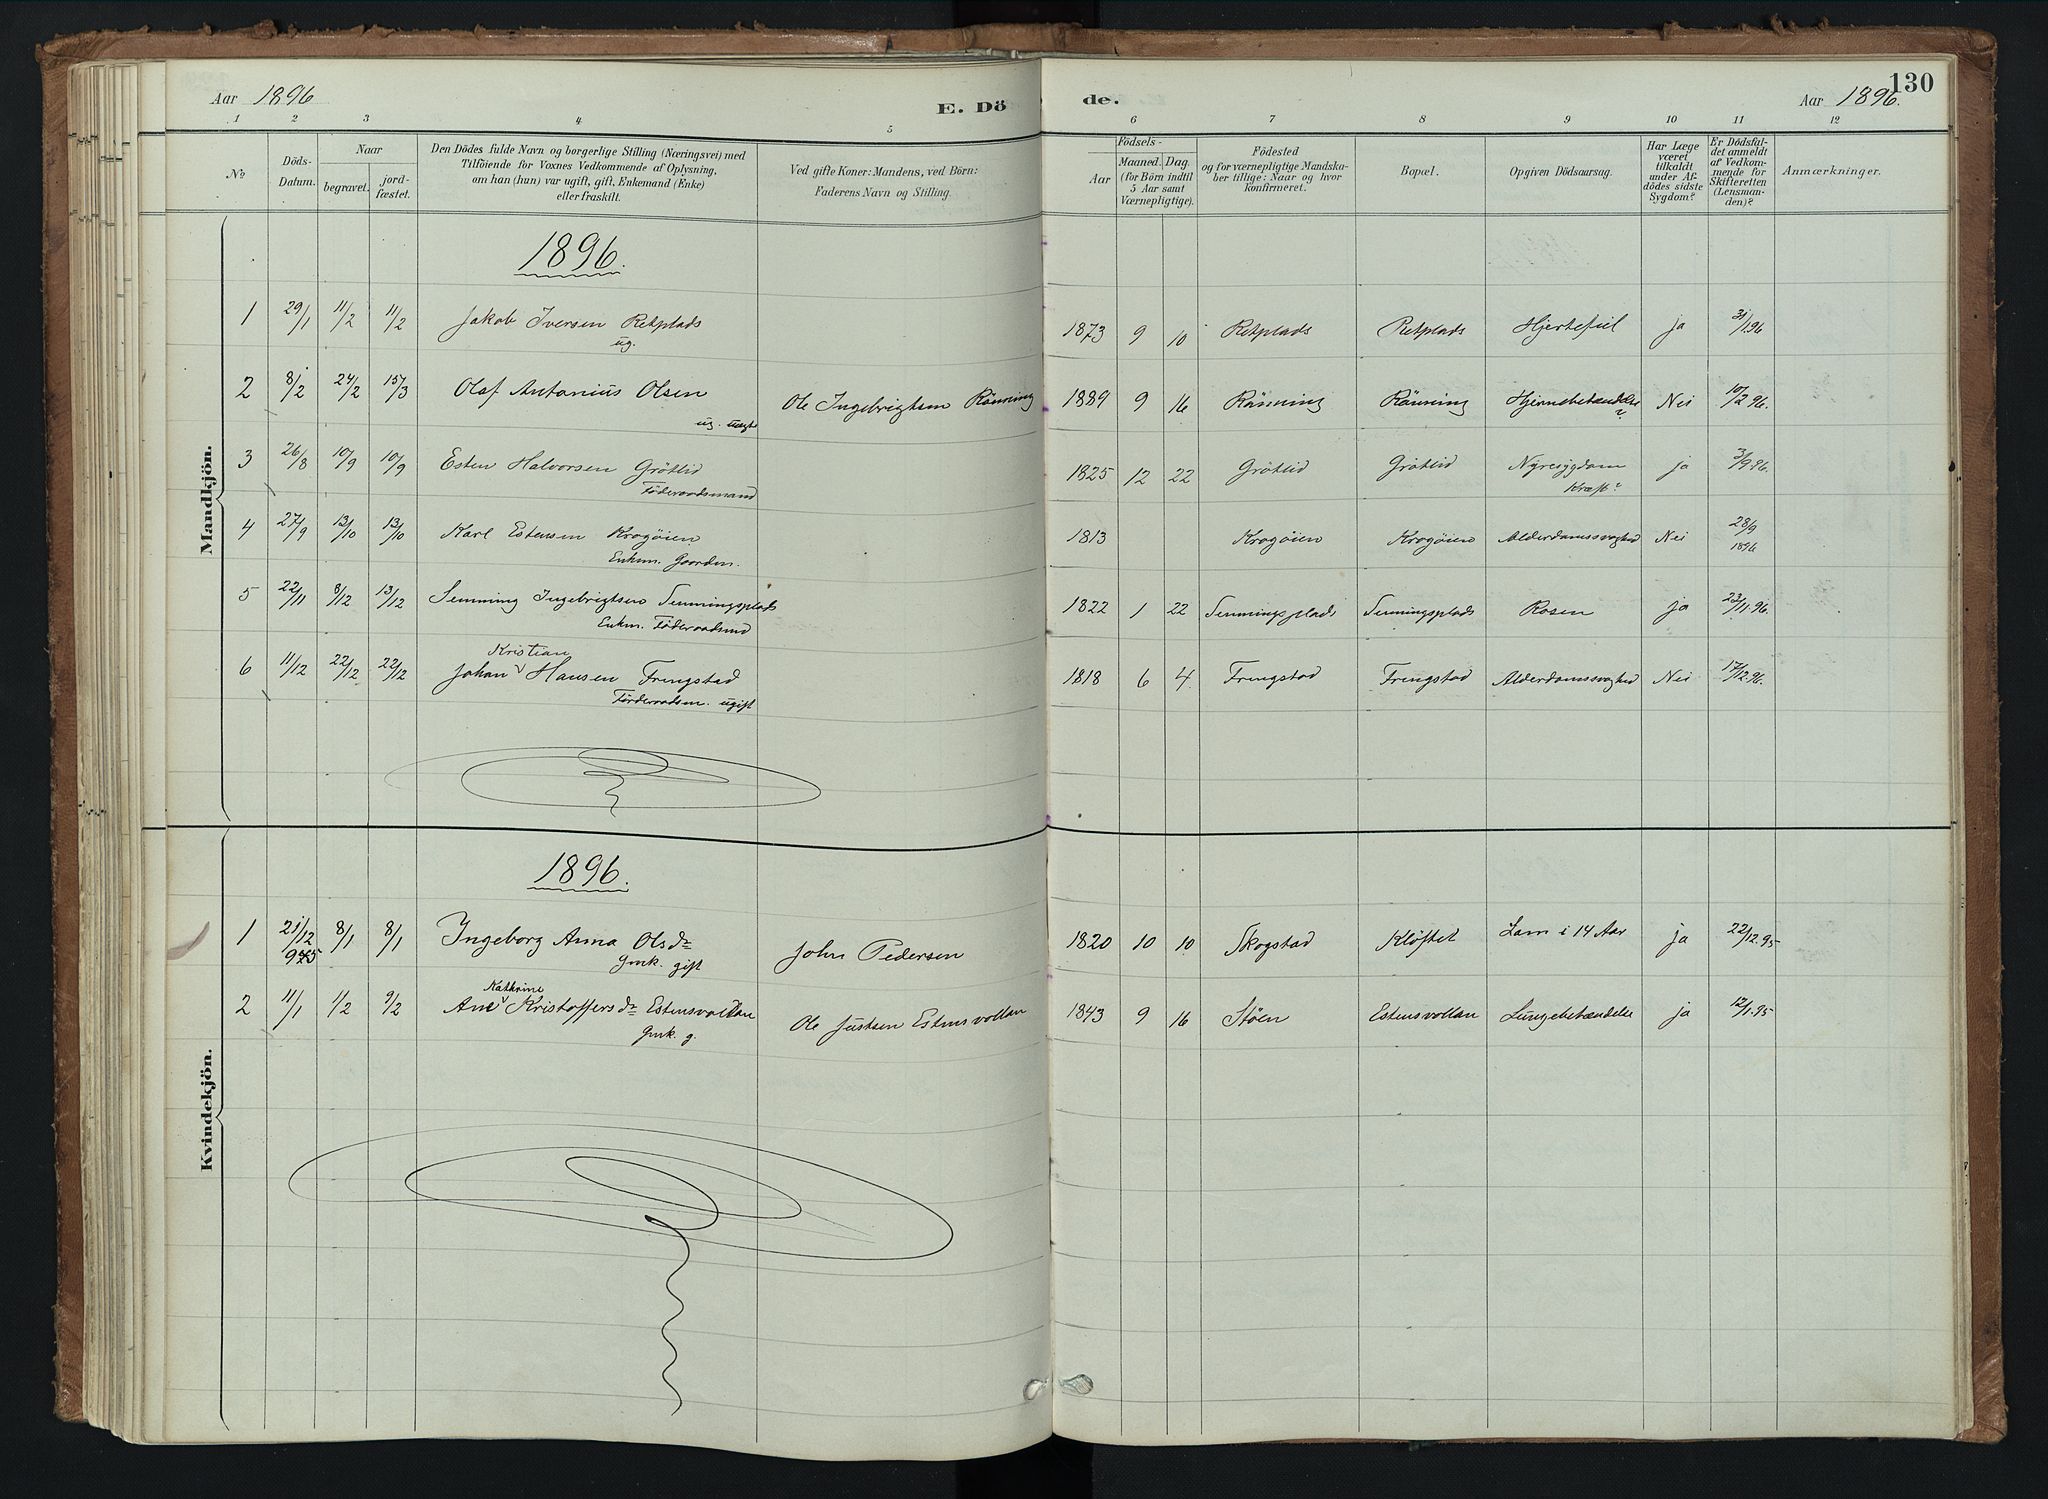 Aar 1896
E. Dö de.
Aar 1896.
130
1 2 3 4 5 6 7 8 9 10 11 12
No
Döds-Datum.
Naar
begravet.
jord-fæstet.
Den Dödes fulde Navn og borgerlige Stilling (Næringsvei) med
Tilföiende for Voxnes Vedkommende af Oplysning,
om han (hun) var ugift, gift, Enkemand (Enke)
eller fraskilt.
Ved gifte Koner: Mandens, ved Börn:
Faderens Navn og Stilling.
Födsels-
Aar
Maaned. Dag.
(for Börn indtil
5 Aar samt
Værnepligtige).
Födested
og for værnepligtige Mandska-
ber tillige: Naar og hvor
konfirmeret.
Bopæl.
Opgiven Dödsaarsag.
Har Læge
været
tilkaldt
under Af-
dödes sidste
Sygdom?
Er Dödsfal-
det anmeldt
af Vedkom-
mende for
Skifteretten
(Lensman-
den)?
Anmærkninger.
Mandkjön.
1896.
1 29/1 11/2 11/2 Jakob Iversen Retplads 1873 9 10 Retplads Retplads Hjertefeil ja 31/1 96
ug.
2 8/2 24/2 15/3 Olaf Antonius Olsen Ole Ingebrigtsen Rönning 1889 9 16 Rönning Rönning Hjernebetændelse Nei 10/2 96.
ug. ?
3 26/8 10/9 10/9 Esten Halvorsen Grötlid 1825 12 22 Grötlid Grötlid Nyresygdom ja 3/9 96.
Föderaadsmand Kræft?
4 27/9 13/10 13/10 Karl Estensen Krogöien 1813 Krogöien Krogöien Alderdomssvaghed Nei 28/9 1896
Enkm. Gaardm.
5 22/11 8/12 13/12 Semming Ingebrigtsen 1822 1 22 Rosen ja 23/11 96.
Enkm.
6 11/12 22/12 22/12 Johan Kristian Hansen Fringstad 1818 6 4 Fringstad Fringstad Alderdomssvaghed Nei 17/12 96.
ugift
Kvindekjön.
1896.
1 21/12 95 8/1 8/1 Ingeborg Anna Olsdr John Pedersen 1820 10 10 Skogstad Klöftet Lam i 14 Aar ja 22/12 95
Gmk. gift
2 11/1 1/2 9/2 Ane Kathrine Kristoffersdr Estensvollan Ole Justsen Estensvollan 1843 9 16 Stöen Estensvollan Lungebetændelse ja 12/1 95
Gmk. g.